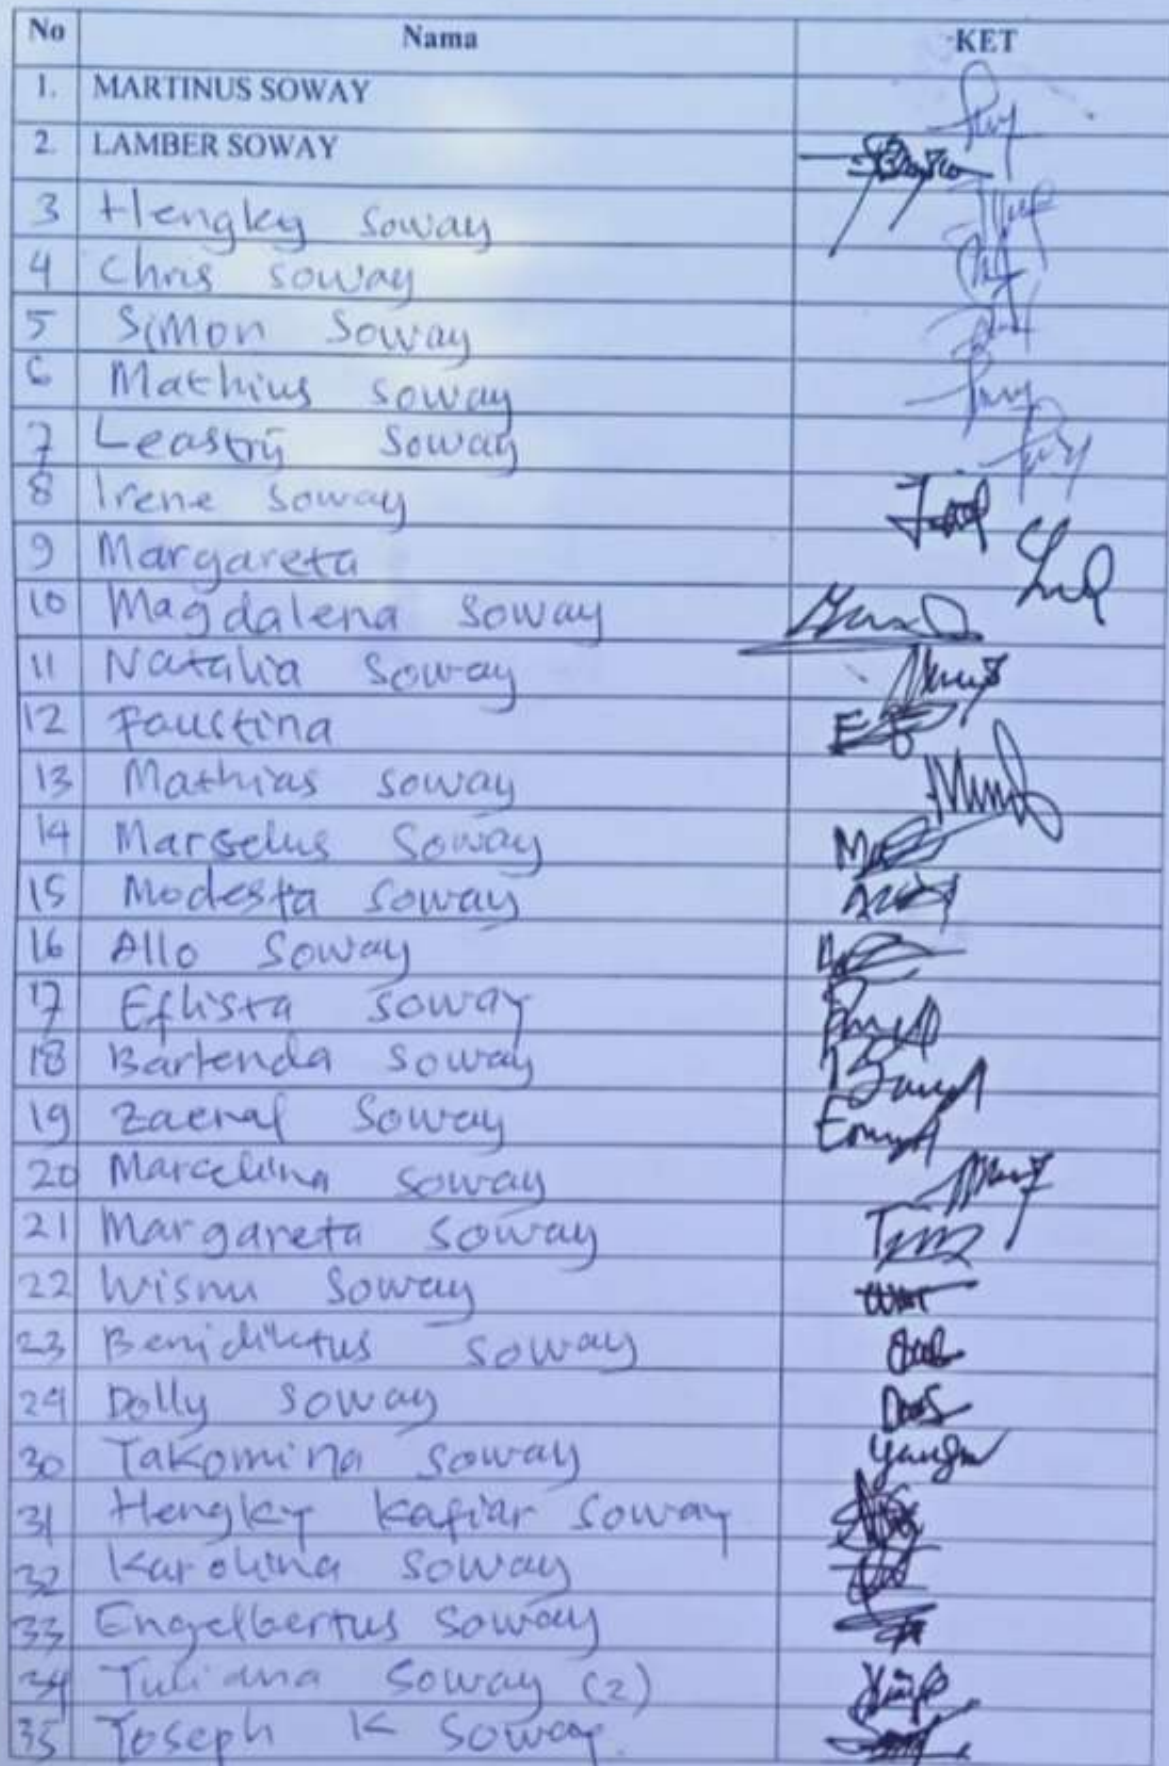 No Nama KET
1. MARTINUS SOWAY
2. LAMBER SOWAY
3 Hengky Soway
4 Chris Soway
5 Simon Soway
6 Mathius Soway
7 Leastrij Soway
8 Irene Soway
9 Margareta
10 Magdalena Soway
11 Natalia Soway
12 Faustina
13 Mathias Soway
14 Marselus Soway
15 Modesta Soway
16 Allo Soway
17 Eflista Soway
18 Bartenda Soway
19 Zaenal Soway
20 Marcelina Soway
21 Margareta Soway
22 Wisnu Soway
23 Benidiktus Soway
29 Dolly Soway
30 Takomina Soway
31 Hengky Kafiar Soway
32 Karolina Soway
33 Engelbertus Soway
34 Yuliana Soway (2)
35 Yoseph K Soway.